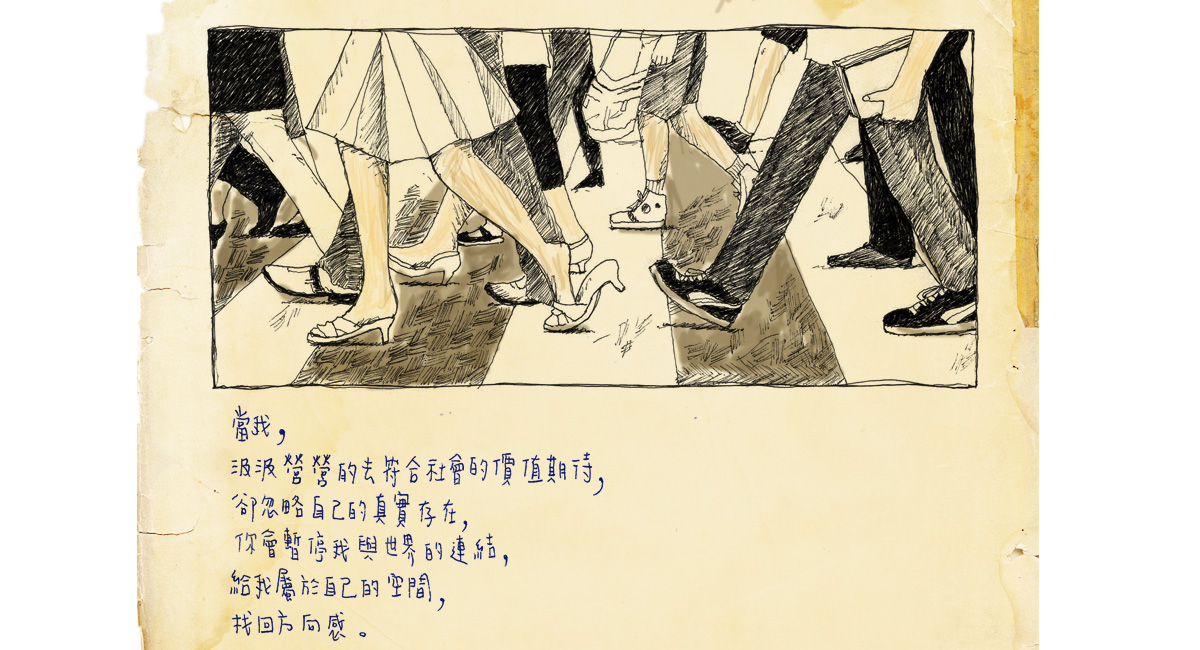 當我,
汲汲營營的去符合社會的價值期待,
卻忽略自己的真實存在,
你會暫停我與世界的連結,
給我屬於自己的空間,
找回方向感。